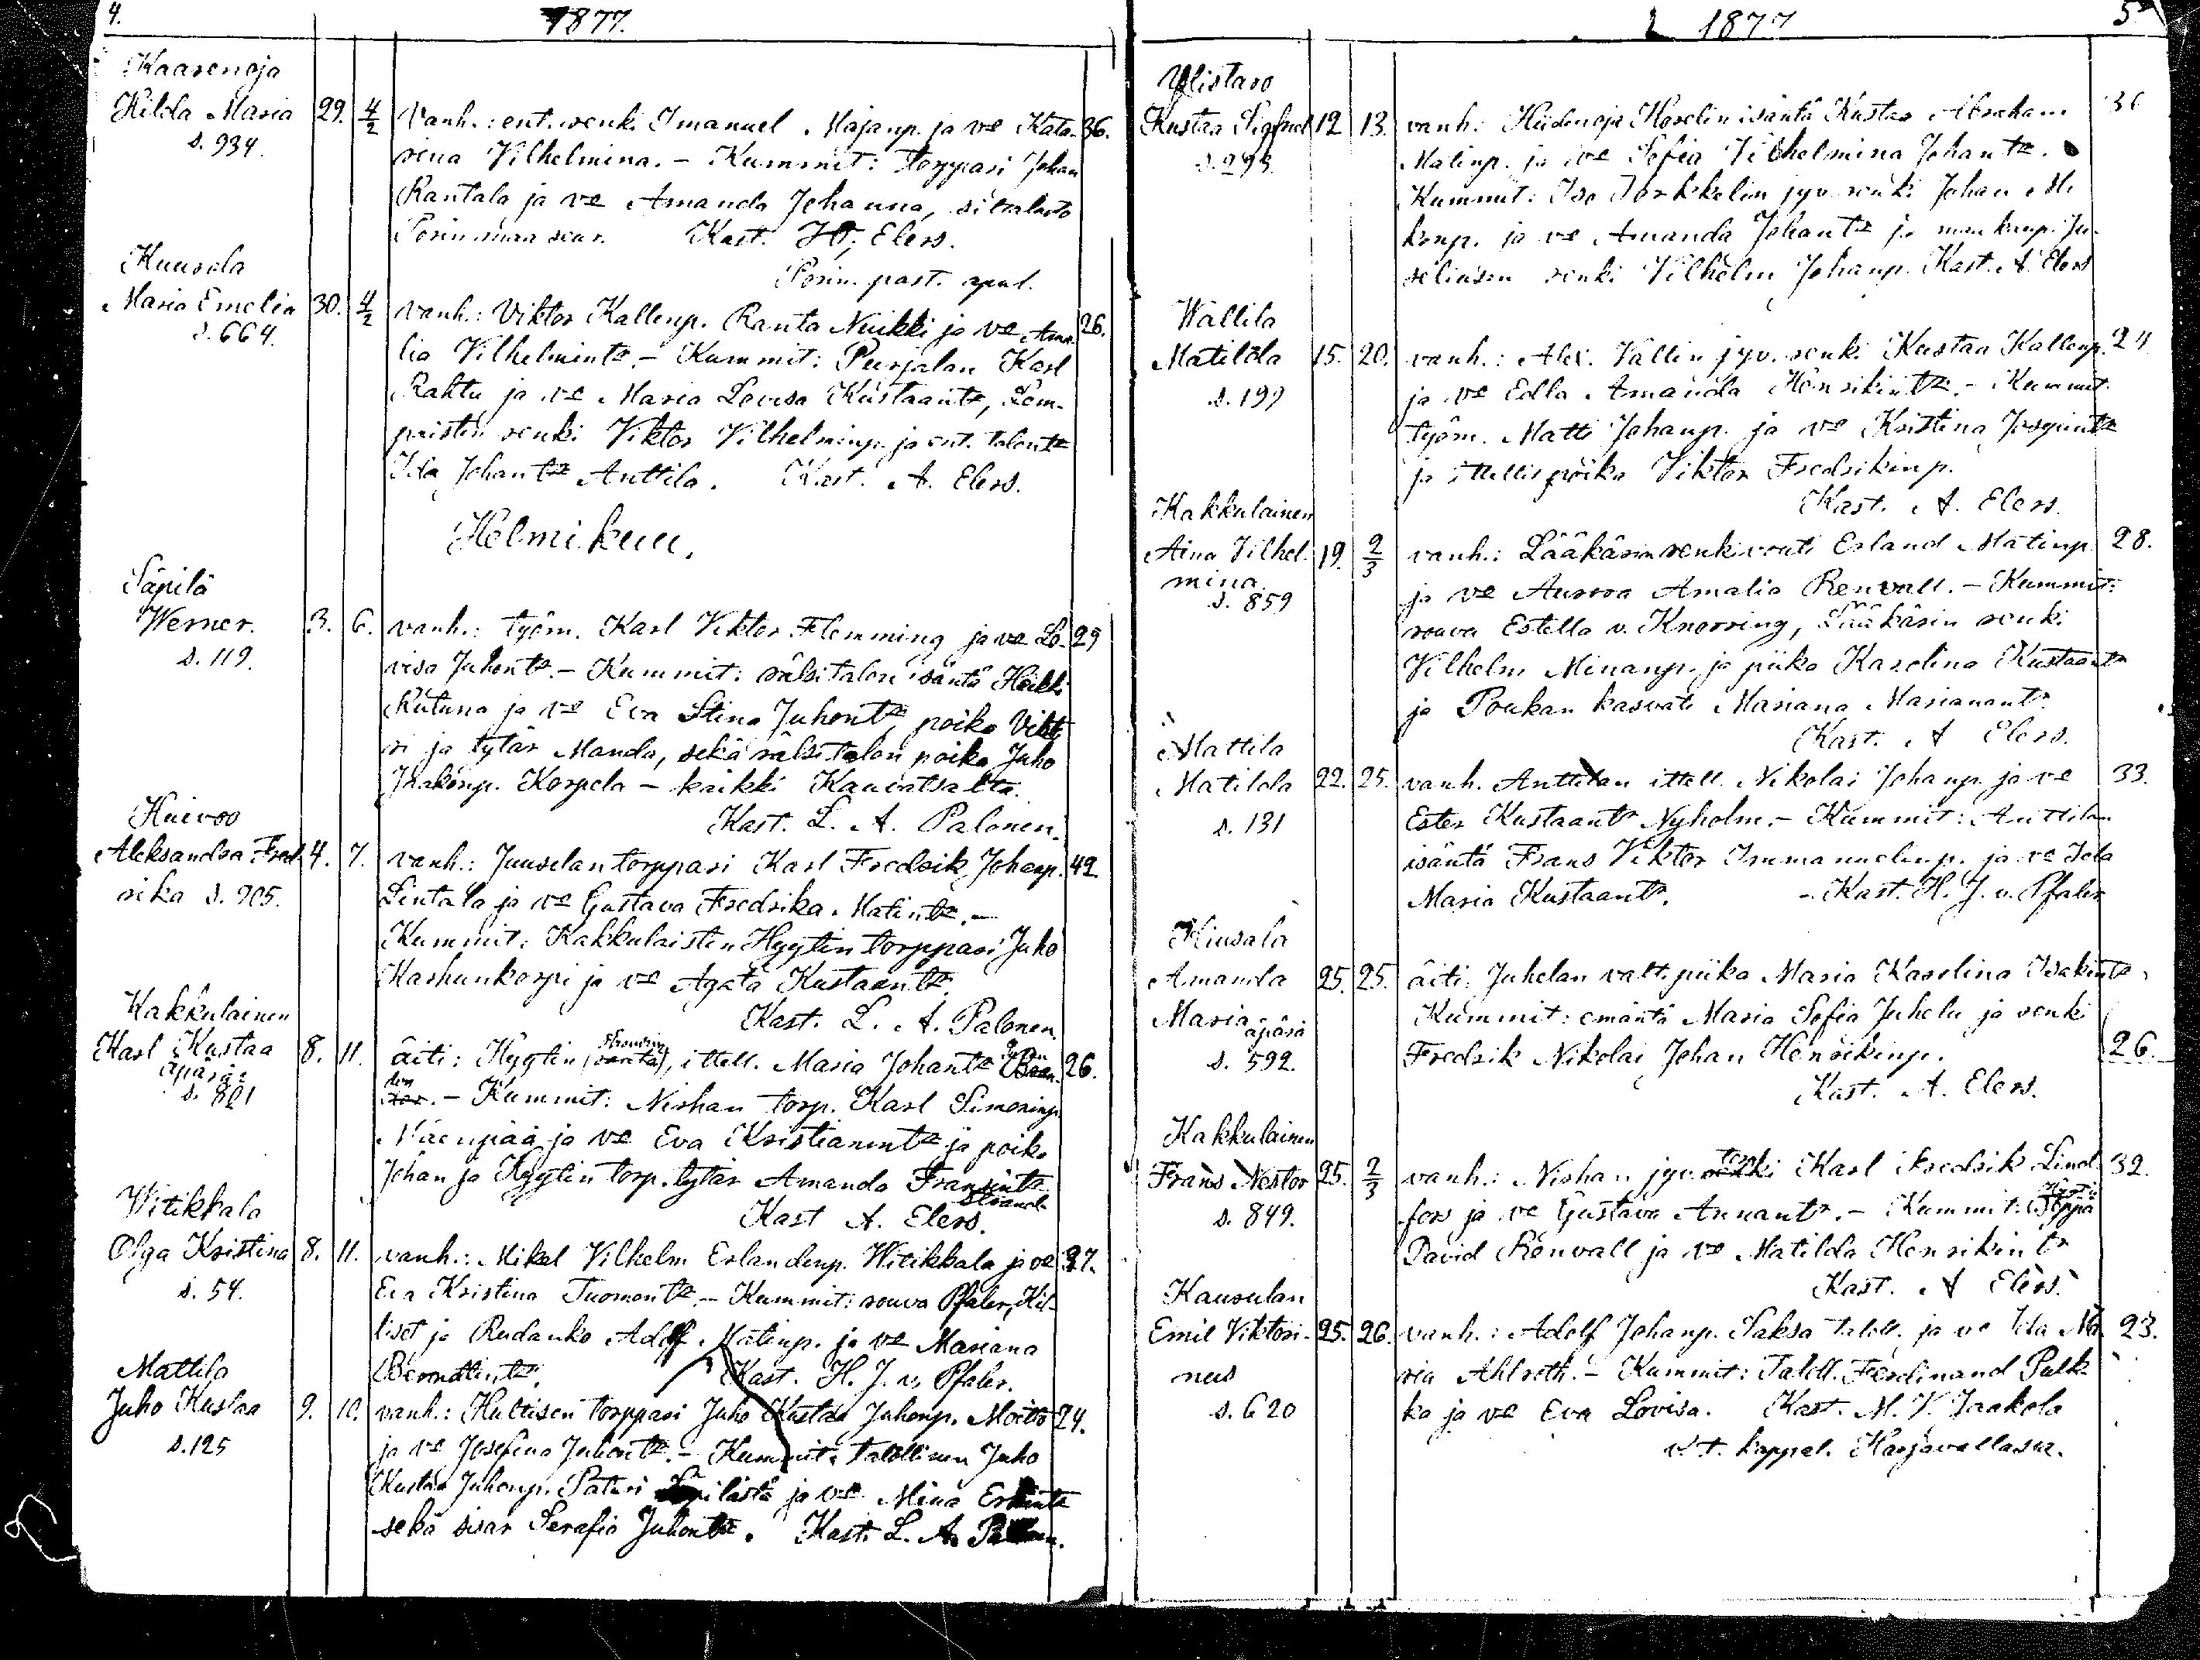 4.
1877.
Kaarenoja
Hilda Maria 29. 4/2 Vanh.: ent. renki Imanuel Majanp. ja vo Kata- 36.
s. 934. rina Vilhelmina. - Kummit: torppari Johan
Rantala ja vo Amanda Johanna,
Porin maa seur. Kast. Elers.
Porin. past. apul.
Kuusela
Maria Emelia 30. 4/2 vanh.: Viktor Kallenp. Ranta Nuikki ja vo Ama- 26.
s. 664. lia Vilhelmintr. - Kummit: Peurjalan Karl
Rahtu ja vo Maria Lovisa Kustaantr, Lem-
pristin renki Viktor Vilhelminp. ja ent. talontr
Ida Johantr Anttila. Kast. A. Elers.
Helmikuu.
Säpilä
Werner. 3. 6. vanh.: työm. Karl Viktor Flemming ja vo Lo- 29
s. 119. visa Juhontr. - Kummit: rälsitalon isäntä Heikki
Rutuna ja vo Eva Stina Juhontr, poika Vikt-
ri ja tytär Manda, sekä rälsitalon poika Juho
Jaakonp. Korpela - kaikki Kauvatsalta.
Kast. L. A. Palonen.
Huivoo
Aleksandra Fred- 4. 7. vanh.: Juuselan torppari Karl Fredrik Johanp. 42
rika s. 905. Lintala ja vo Gustava Fredrika Matintr. -
Kummit: Kakkulaisten Hyytin torppari Juho
Karhunkorpi ja vo Agata Kustaantr.
Kast. L. A. Palonen.
Kakkulainen
Karl Kustaa 8. 11. äiti: Hyytin, ittell. Maria Johantr 26.
äpärä
s. 821 - Kummit: Nishan torp. Karl Simoninp.
Mäenpää ja vo Eva Kristianintr ja poika
Johan ja Hyytin torp. tytär Amanda Fransintr
Strand.
Kast A. Elers.
Witikkala
Olga Kristina 8. 11. vanh.: Mikel Vilhelm Erlandinp. Witikkala ja vo 27.
s. 54. Eva Kristina Tuomontr. - Kummit: rouva Pfaler, Kil-
liset ja Rudanko Adolf Matinp. ja vo Mariana
Berndtintr. Kast. H. J. v. Pfaler.
Mattila
Juho Kustaa 9. 10. vanh.: Hultisen torppari Juho Kustaa Juhonp. Moito 24.
s. 125 ja vo Josefina Juhontr. - Kummit: talollinen Juho
Kustaa Juhonp. Paturi Säpilästä ja vo Mina Erkintr
sekä sisar Serafia Juhontr. Kast. L. A. Palonen.
1877
5
Ylistaro
Kustaa Sigfrid 12 13. vanh.: Hiidenoja Horelin isäntä Kustas Abraham 36
Matinp. ja vo Sofia Vilhelmina Johantr.
Kummit: Iso Torkkelin jyv. renki Johan Mi
konp. ja vo Amanda Johantr ja Ju-
seliusen renki Vilhelm Johanp. Kast. A. Elers
Wallila
Matilda 15. 20. vanh.: Alex. Vallin jyv. renki Kustaa Kallenp. 24
s. 199 ja vo Edla Amanda Henrikintr. - Kummit:
työm. Matti Johanp. ja vo Kristina Josepintr
ja ittellis poika Viktor Fredrikinp.
Kast. A. Elers.
Kakkulainen
Aina Vilhel- 19. 2/3 vanh.: Lääkärin renkivouti Erland Matinp 28.
mina
s. 859 ja vo Aurora Amalia Renvall. - Kummit:
rouva Estella v. Knorring, Lääkärin renki
Vilhelm Minanp. ja piika Karolina Kustaantr
ja Poukan kasvati Mariana Marianantr.
Kast. A Elers.
Mattila
Matilda 22. 25. vanh. Anttilan ittell. Nikolai Johanp. ja vo 33.
s. 131 Ester Kustaantr Nyholm. - Kummit: Anttilan
isäntä Frans Viktor Immanuelinp. ja vo Ida
Maria Kustaantr. - Kast. H. J. v. Pfaler
Hiusala
Amanda 25. 25. äiti: Juhelan valt. piika Maria Karolina Isakintr.
Maria äpärä Kummit: emäntä Maria Sofia Juhela ja renki
s. 592. Fredrik Nikolai Johan Henrikinp. 26.
Kast. A. Elers.
Kakkulainen
Frans Nestor 25. 2/3 vanh.: Nishan jyv. Karl Fredrik Lind- 32.
s. 849. fors ja vo Gustava Annantr. - Kummit:
David Renvall ja vo Matilda Henrikintr
Kast. A Elers.
Kausulan
Emil Viktori- 25. 26. vanh.: Adolf Johanp. Saksa taloll. ja vo Ida Ma- 23.
nus ria Ahlroth. - Kummit: Taloll. Ferdinand Pulk-
s. 620 ka ja vo Eva Lovisa. Kast. M. V. Jaakola
v. t. kappal. Harjavallassa.